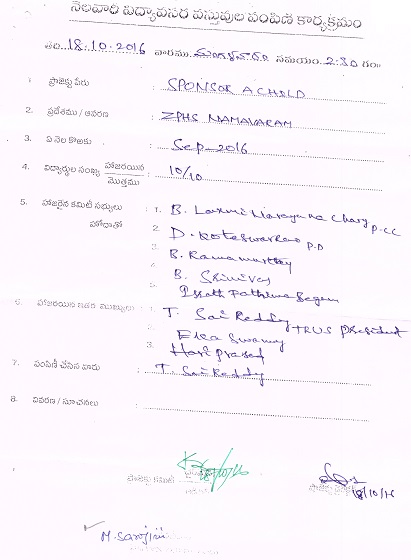 నెలవారి విద్యావసర వస్తువుల పంపిణి కార్యక్రమం
తేది 18.10.2016 వారము మంగళవారం సమయం. 2:30 గం॥
1. ప్రాజెక్టు పేరు : SPONSOR A CHILD
2. ప్రదేశము / ఆవరణ : ZPHS MAMAVARAM
3. ఏ నెల కొఱకు : Sep-2016
4. విద్యార్థుల సంఖ్య హాజరయిన : 10/10
మొత్తము
5. హాజరైన కమిటీ సభ్యులు : 1. B. Laxmi Narayana Chary P.CC
హోదాతో 2. D. Koteswarrao P.D
3. B. Ramamurthy
B. Srinivas
5. Fathima Begum
6. హాజరయిన ఇతర ముఖ్యులు : 1. T. Sai Reddy TRUS President
2. Swamy
3. Hari prasad
7. పంపిణీ చేసిన వారు : T. Sai Reddy
8. వివరణ / సూచనలు :
ప్రాజెక్టు కమిటీ
18/10/16
M. Sarojini